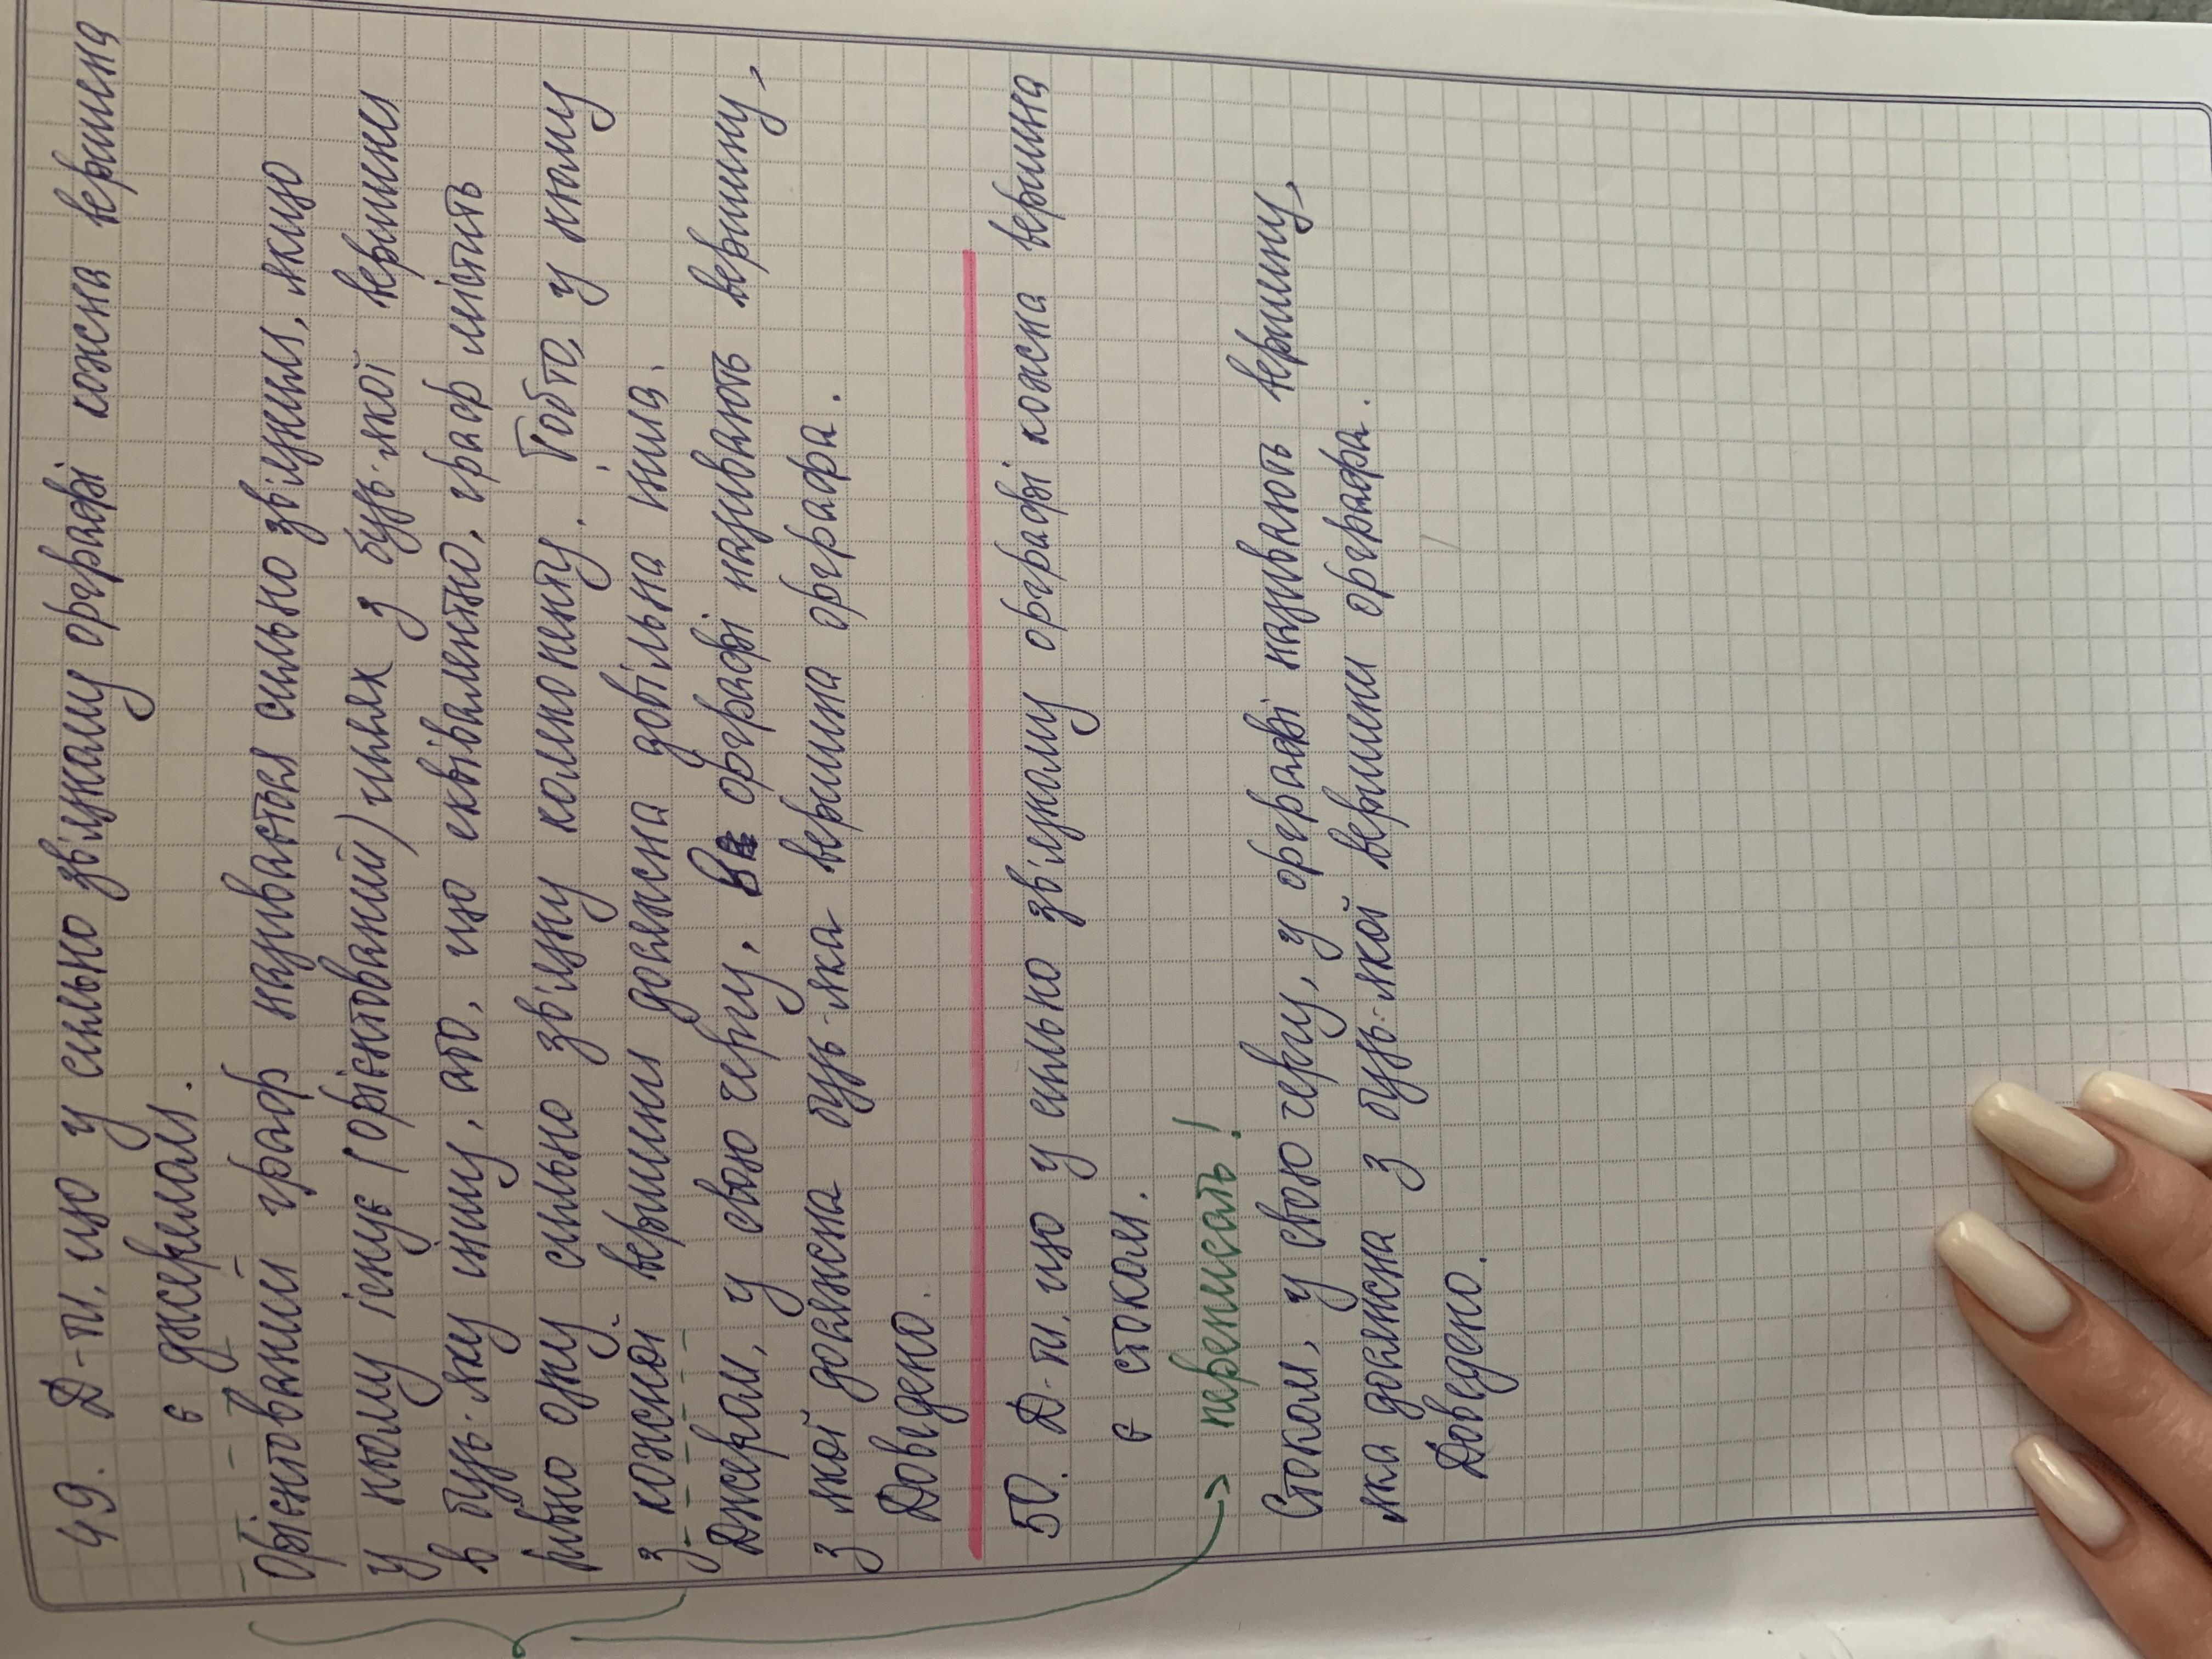 49. Д-ти, що у сильно зв'язному орграфі кожна вершина
є джерелом.
Орієнтований граф називається сильно зв'язним, якщо
у ньому існує (орієнтований) шлях з будь-якої вершини
в будь-яку іншу, або, що еквівалентно, граф містить
рівно одну сильно зв'язну компоненту. Тобто, у ньому
з кожної вершини досяжна довільна інша.
Джером, у свою чергу, в орграфі називають вершину,
з якої досяжна будь-яка вершина орграфа.
Доведено.
50. Д-ти, що у сильно зв'язному орграфі кожна вершина
є стоком.
→ переписать!
Стоком, у свою чергу, у орграфі називають вершину,
яка досяжна з будь-якої вершини орграфа.
Доведено.